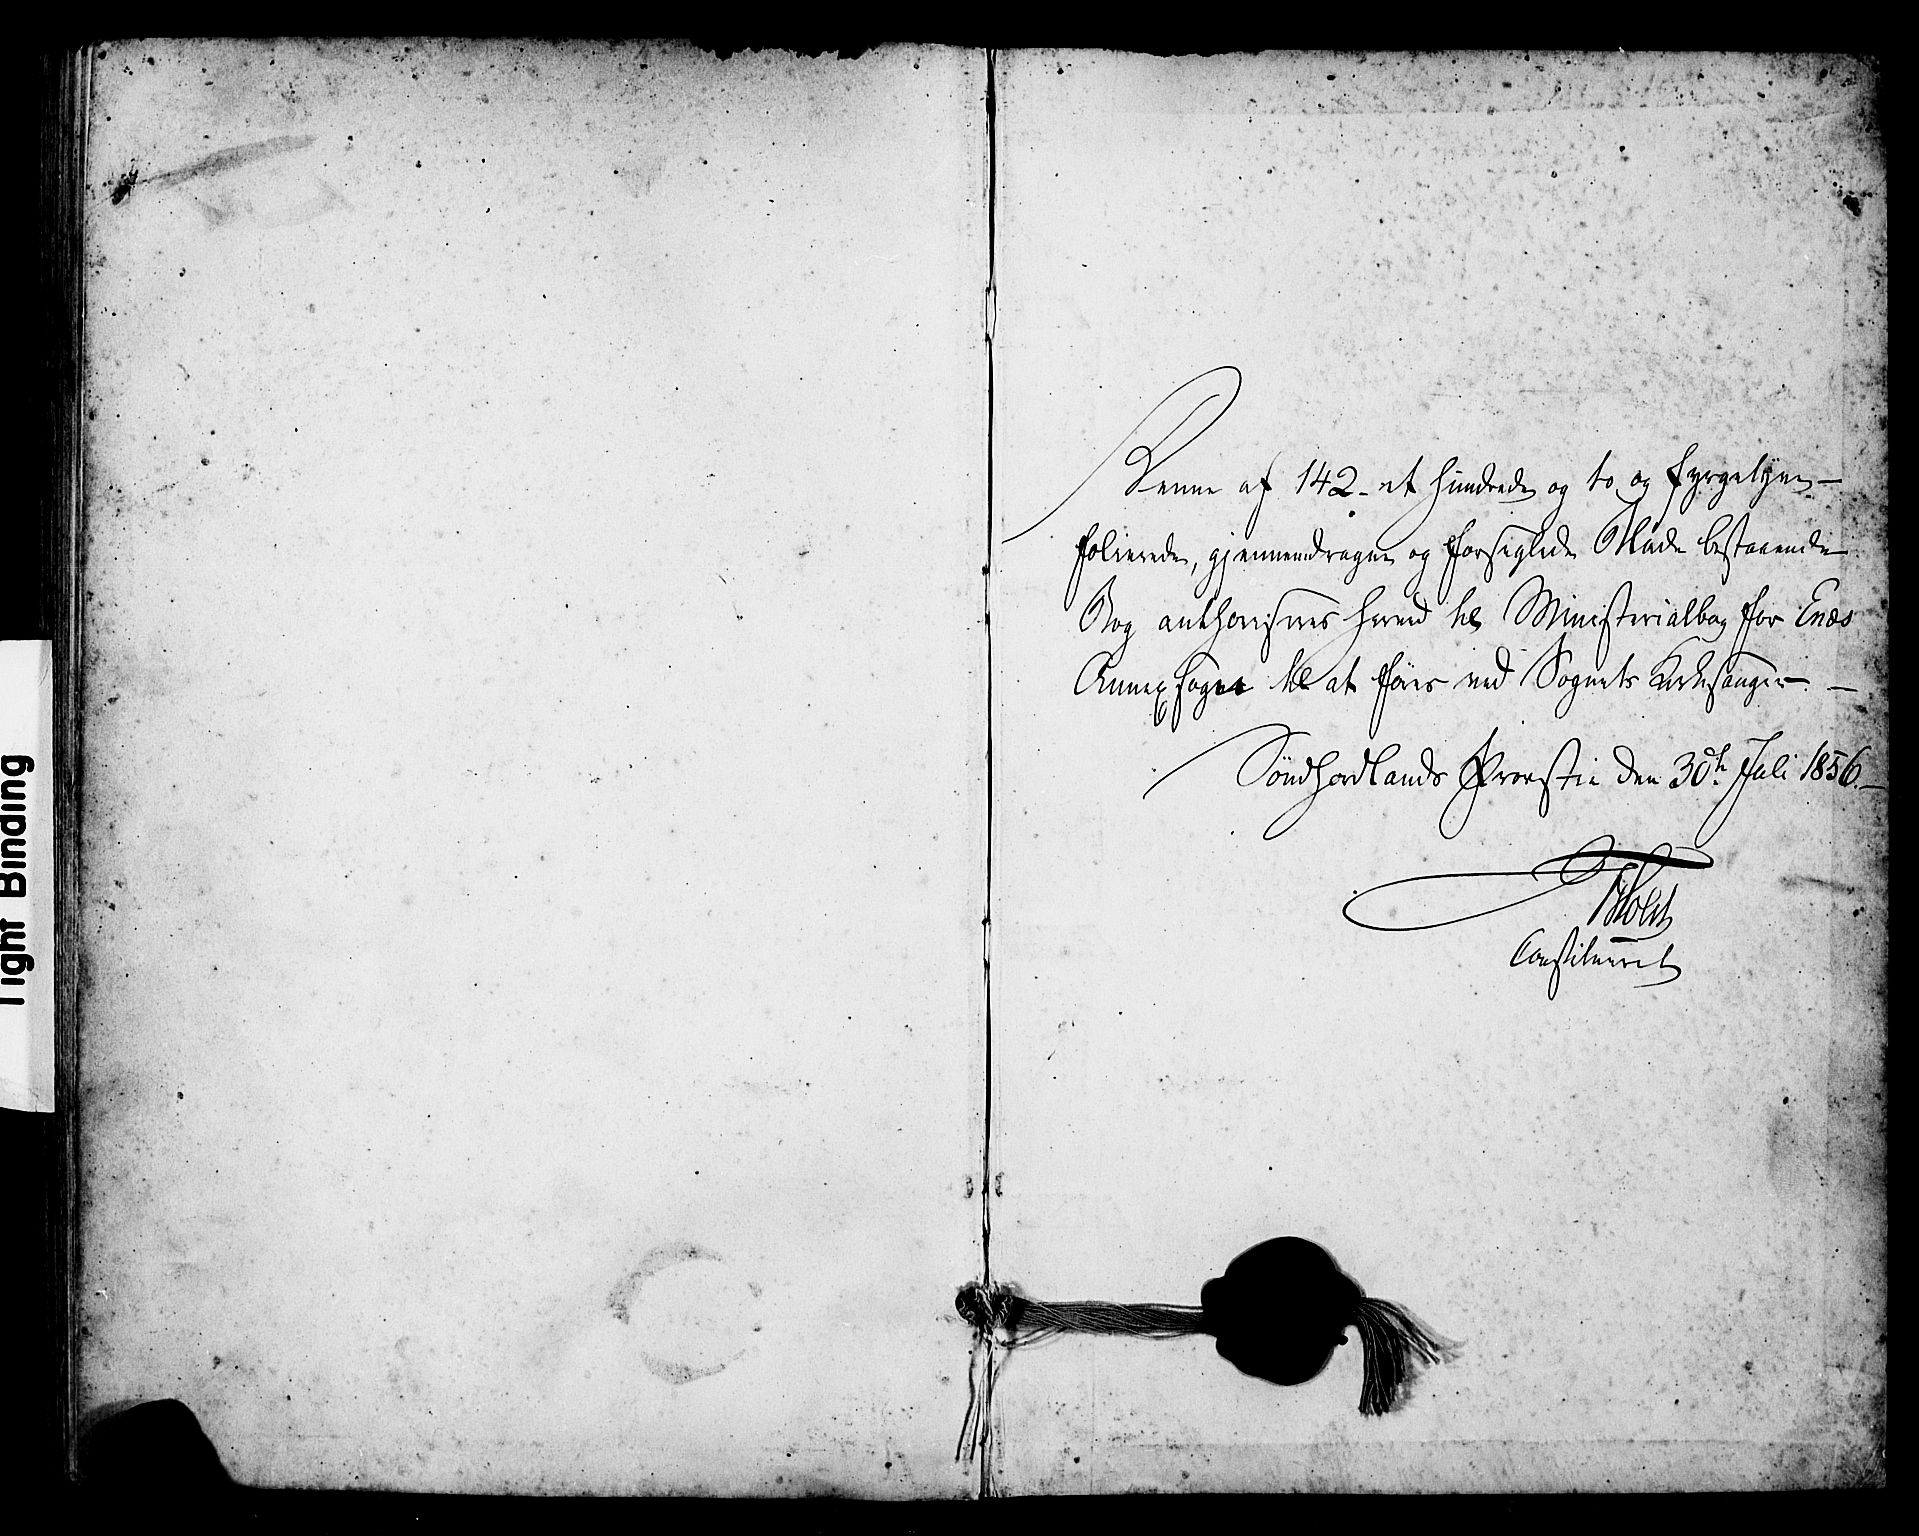 Tight Binding
Denne af 142 - et hundrede og to og fyrgetyve -
folierede, gjennemdragne og forseglede Blade bestaaende
Bog authoriseres herved til Ministerialbog for Enæs
Annexsogn til at føres ved Sognets Kirkesanger. -
Søndhordlands Provstie den 30te Juli 1856. -
Holst
Constitueret